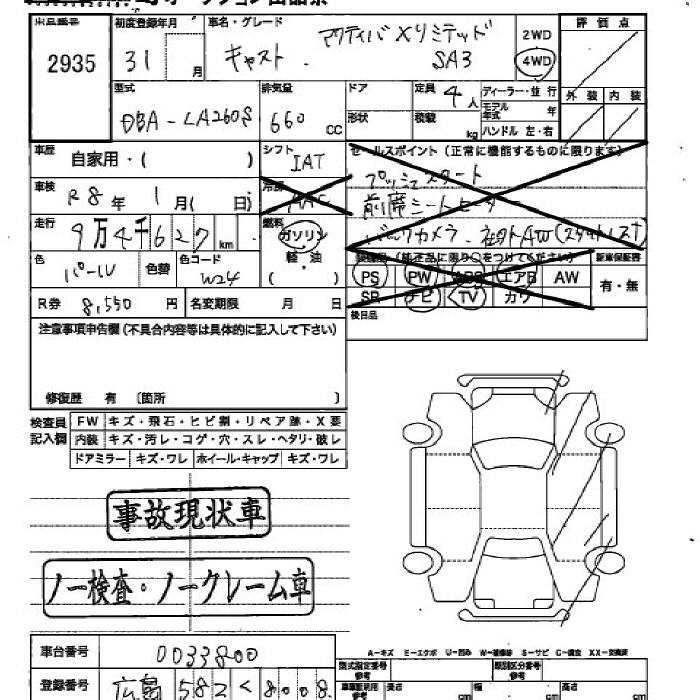 出品番号 初度登録年月 車名・グレード 評価点
2935 31 月 キャスト アクティバXリミテッド SA3 2WD 4WD
型式 排気量 ドア 定員 4人 ディーラー・並行 外装 内装
DBA-LA260S 660 CC 形状 積載 kg モデル年式 年
ハンドル 左・右
車歴 自家用・( ) シフト IAT セールスポイント (正常に機能するものに限ります)
プッシュスタート
車検 R8年 1月( 日) 冷房 AAC 前席シートヒーター
走行 9万4千627km 燃料 ガソリン 軽・油 ( ) バックカメラ 社外AW(スタッドレス付)
色 パール 色替 色コード W24 新車保証書
PS PW ABS エアB AW 有・無
R券 8,550円 名変期限 月 日 SR ナビ TV カワ
後日品
注意事項申告欄(不具合内容等は具体的に記入して下さい)
修復歴 有 〔箇所 〕
検査員記入欄 FW キズ・飛石・ヒビ割・リペア跡・X要
内装 キズ・汚レ・コゲ・穴・スレ・ヘタリ・破レ
ドアミラー キズ・ワレ ホイール・キャップ キズ・ワレ
事故現状車
ノー検査・ノークレーム車
A-キズ E-エクボ U-凹み W-補修跡 S-サビ C-腐食 XX-交換済
車台番号 0033800 型式指定番号 類別区分番号
登録番号 広島 582 く 8008 長さ cm 幅 cm cm